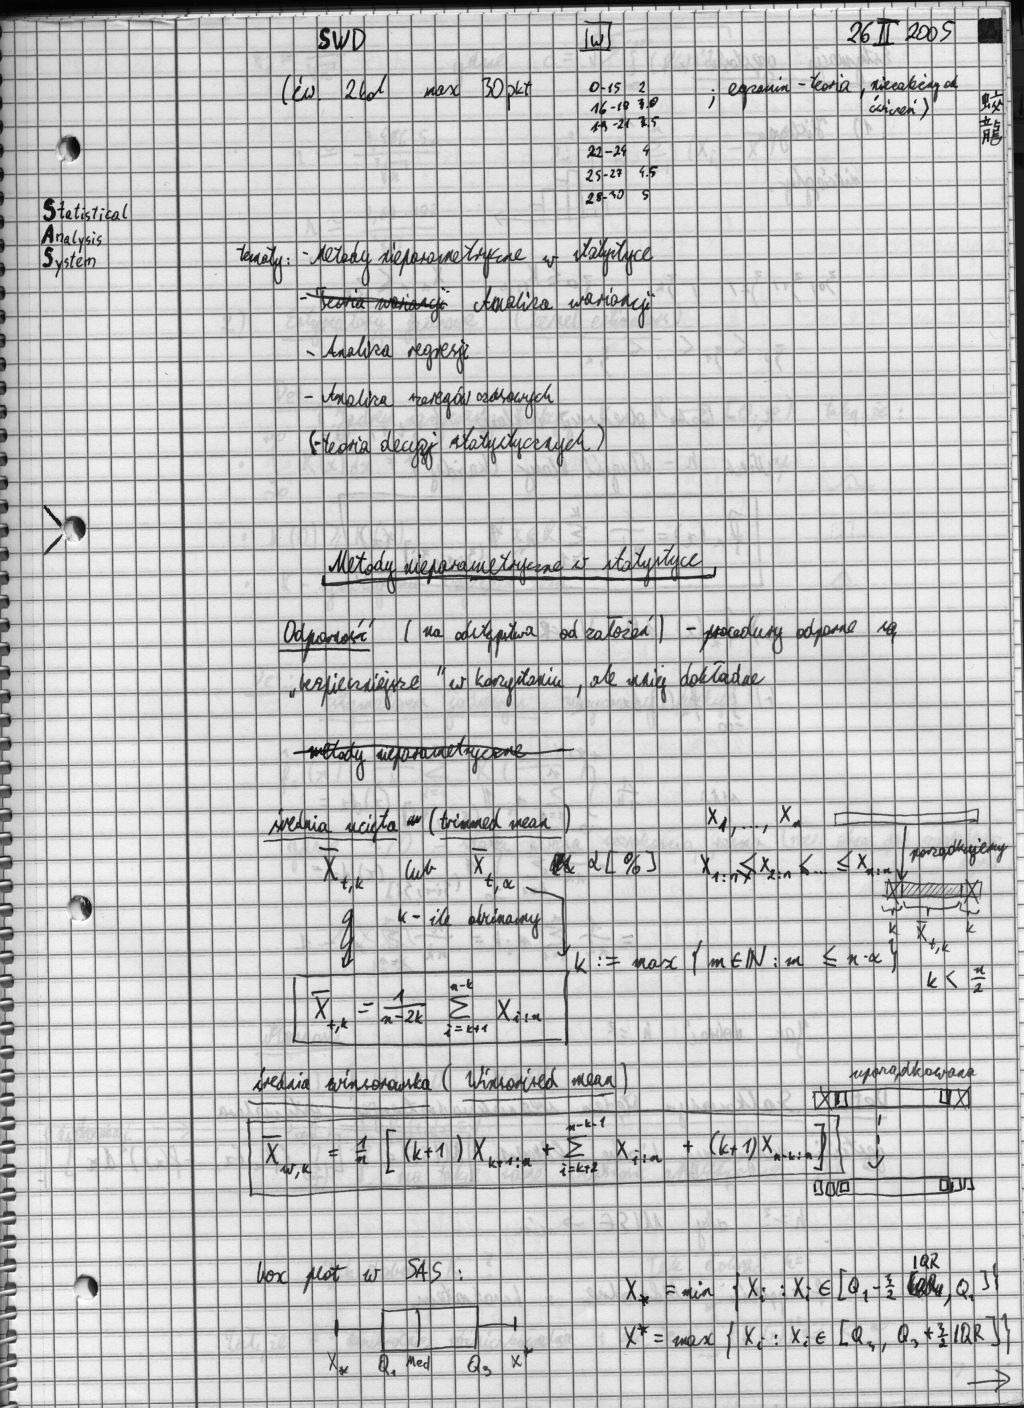 SWD [W] 26 II 2005
(ćw. 2 kol max 30 pkt
0-15 2
16-18 3.0
19-21 3.5
22-24 4
25-27 4.5
28-30 5
; egzamin - teoria, niezależny od
ćwiczeń)
蛟龍
Statistical
Analysis
System
tematy: - Metody nieparametryczne w statystyce
- Teoria wariancji Analiza wariancji
- Analiza regresji
- Analiza szeregów czasowych
(- teoria decyzji statystycznych)
Metody nieparametryczne w statystyce
Odporność (na odstępstwa od założeń) - procedury odporne są
„bezpieczniejsze" w korzystaniu, ale mniej dokładne
metody nieparametryczne
średnia ucięta (trimmed mean) X₁, ..., Xₙ
X̄ₜ,ₖ lub X̄ₜ,α α [%] X₁:ₙ ≤ X₂:ₙ ≤ ... ≤ Xₙ:ₙ porządkujemy
k - ile obcinamy k X̄ₜ,ₖ k
k := max {m ∈ ℕ : m ≤ n·α} k < n/2
X̄ₜ,ₖ = 1/(n-2k) Σ_{i=k+1}^{n-k} X_{i:n}
średnia winsorowska (Winsorised mean) uporządkowana
X̄_{w,k} = 1/n [(k+1) X_{k+1:n} + Σ_{i=k+2}^{n-k-1} X_{i:n} + (k+1) X_{n-k:n}]
box plot w SAS :
X_* = min {X_i : X_i ∈ [Q₁ - 3/2 IQR, Q₁]}
X^* = max {X_i : X_i ∈ [Q₃, Q₃ + 3/2 IQR]}
X_* Q₁ Med Q₃ X^*